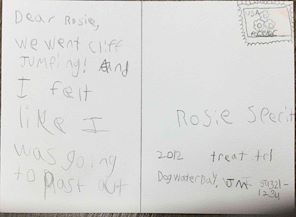 Dear Rosie,
we went cliff
JUMPING! And
I felt
like I
was going
to past out
USA
Rosie Sperit
2012 treat trl
Dogwaterday, JMJ